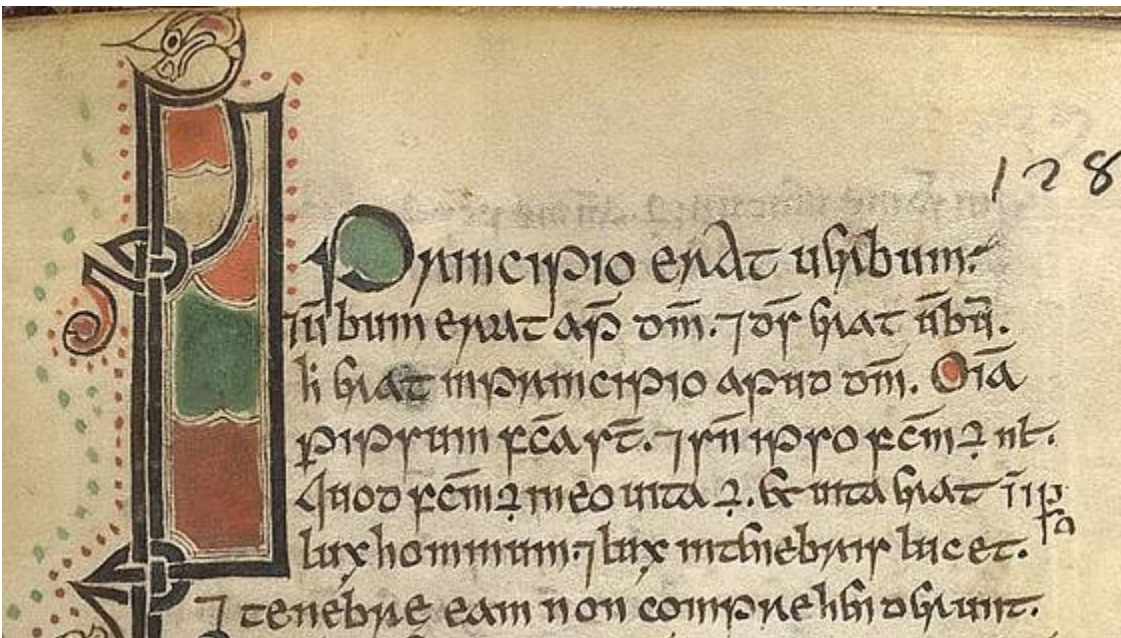 128
IN Principio erat uerbum.
⁊ ūbum erat ap̄ dm̄. ⁊ ds̄ erat ūbū.
h̄ erat in principio apud dm̄. Oīa
ꝑ ipsum fc̄a st̄. ⁊ sn̄ ipso fc̄m ÷ nł.
Quod fc̄m ÷ in eo uita ÷. & uita erat
lux hominum. ⁊ lux in tenebris lucet.
⁊ tenebre eam non comprehenderunt.